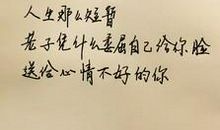 人生那么短暂
老子凭什么委屈自己给你脸
送给心情不好的你